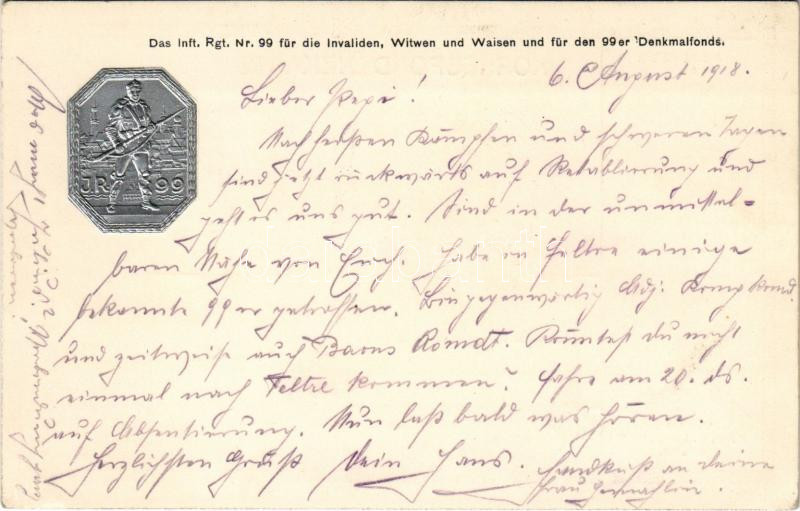 Das Inft. Rgt. Nr. 99 für die Invaliden, Witwen und Waisen und für den 99er Denkmalfonds.
J.R. 99
6. August 1918.
Lieber Pepi!
Nach heißen Kämpfen und schweren Tagen
sind jetzt rückwärts auf Retablierung und
geht es uns gut. Sind in der unmittel-
baren Nähe von Euch. Habe in Feltre einige
bekannte 99er getroffen. Bin gegenwärtig Adj. Komp Komd.
und zeitweise auch Baons Komdt. Könntest du nicht
einmal nach Feltre kommen? Fahre am 20. ds.
auf Absentierung. Nun laß bald was hören.
Herzlichsten Gruß Dein Hans. Handkuß an deine
Frau Gemahlin.